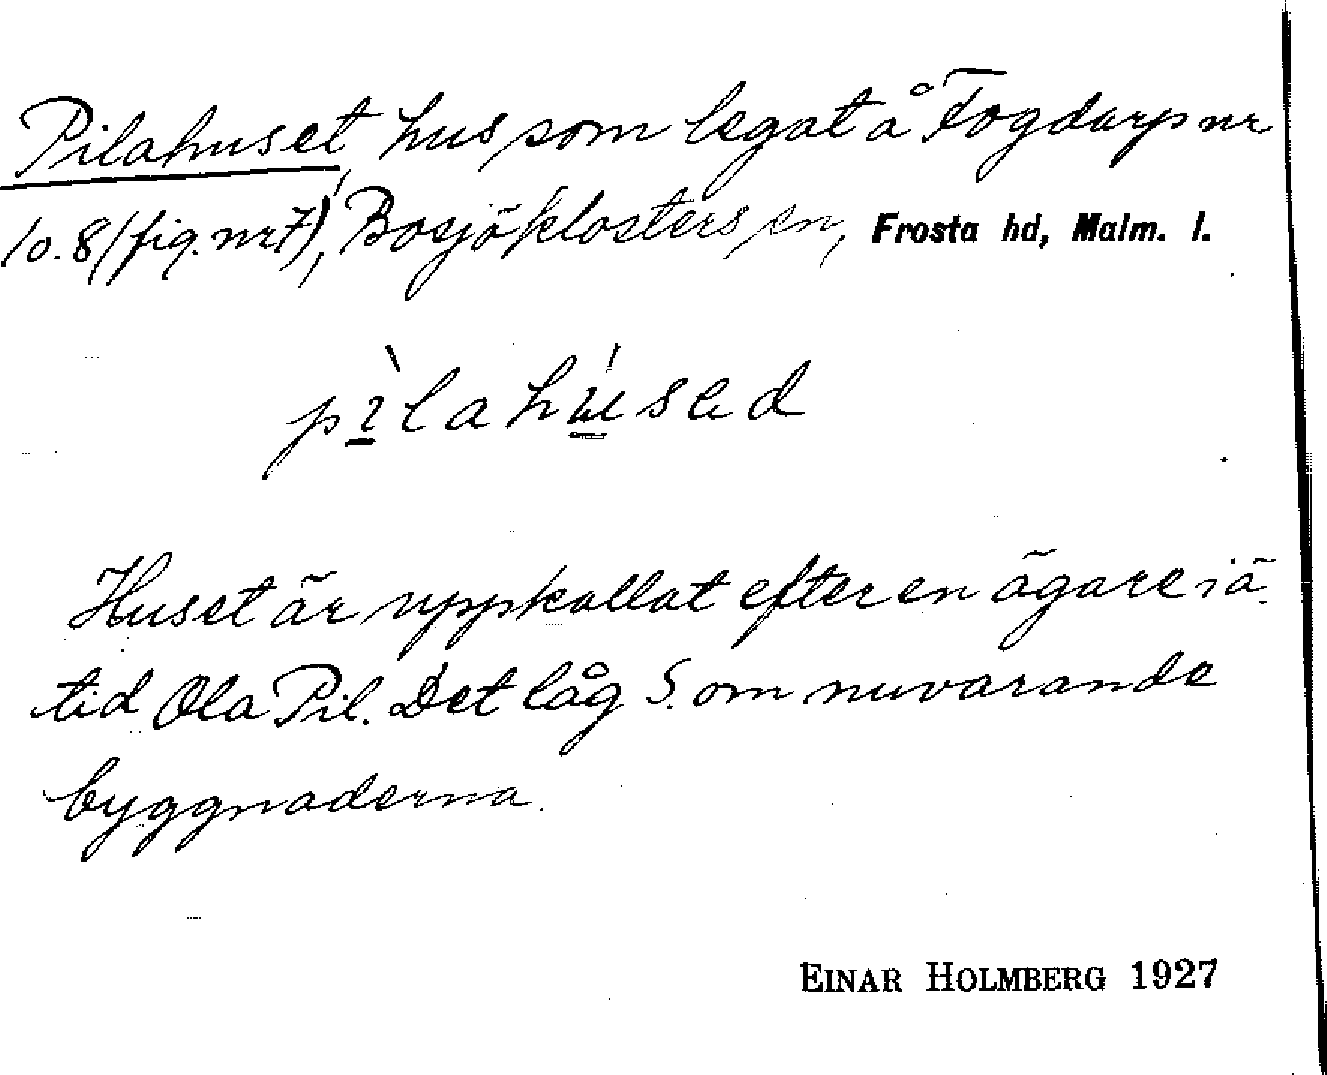 Pilahuset, hus som legat å Fogdarp nr
10.8 (fig. nr 7), Bosjöklosters sn, Frosta hd, Malm. l.
pìlahúsəd
Huset är uppkallat efter en ägare i ä-
tid Ola Pil. Det låg S. om nuvarande
byggnaderna.
EINAR HOLMBERG 1927